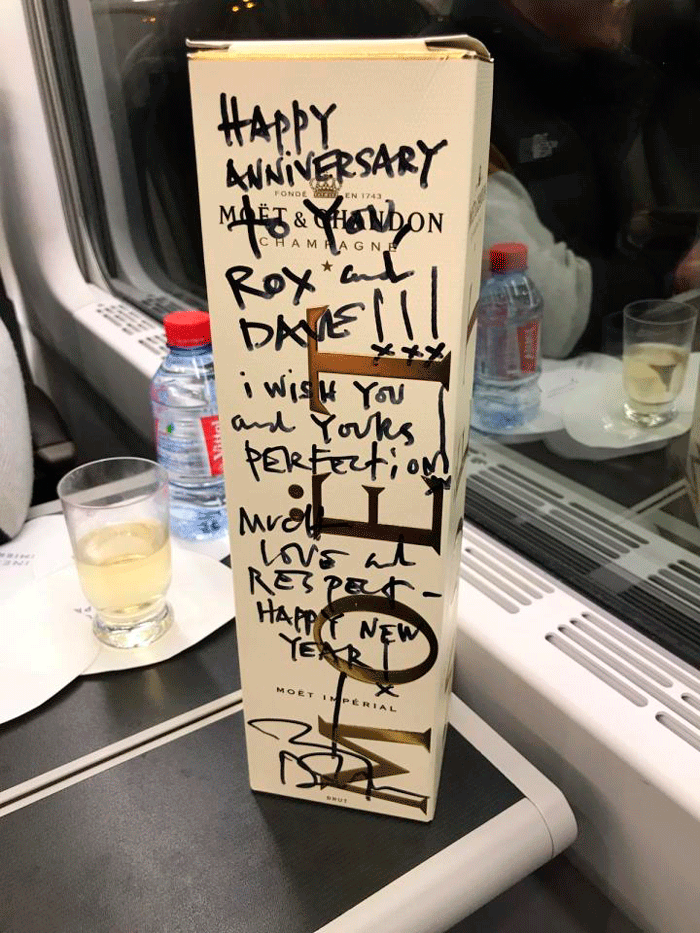 HAPPY
ANNIVERSARY
FONDÉ EN 1743
to You
MOËT & CHANDON
CHAMPAGNE
ROX and
DAVE!!!
xxx
i WISH YOU
and YOURS
PERFECtiON!
x
MUCH
LOVE and
RESPECt -
HAPPY NEW
YEAR!
x
MOËT IMPÉRIAL
BRUT
MOËT
Vittel